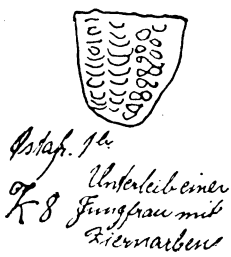 Ostafr.
K 8 Unterleib einer
Jungfrau mit
Ziernarben